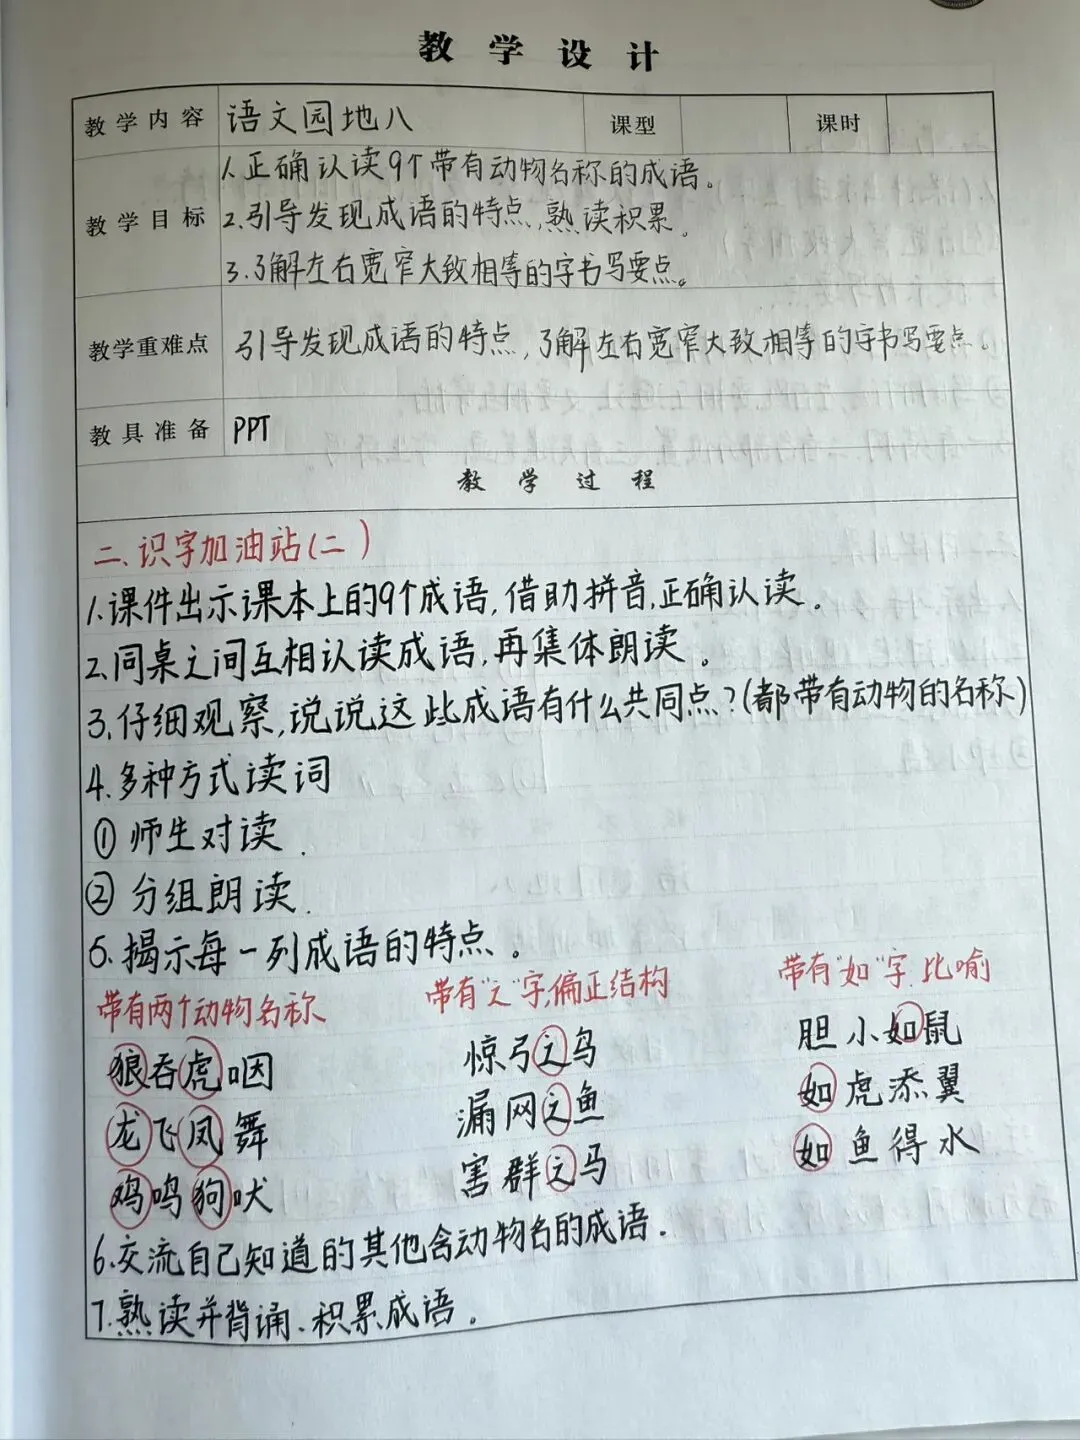 教学设计
教学内容 语文园地八 课型 课时
教学目标
1.正确认读9个带有动物名称的成语。
2.引导发现成语的特点,熟读积累。
3.了解左右宽窄大致相等的字书写要点。
教学重难点 引导发现成语的特点,了解左右宽窄大致相等的字书写要点。
教具准备 PPT
教学过程
二、识字加油站(二)
1.课件出示课本上的9个成语,借助拼音,正确认读。
2.同桌之间互相认读成语,再集体朗读。
3.仔细观察,说说这些成语有什么共同点?(都带有动物的名称)
4.多种方式读词
①师生对读.
②分组朗读.
5.揭示每一列成语的特点。
带有两个动物名称 带有"之"字,偏正结构 带有"如"字.比喻
狼吞虎咽 惊弓之鸟 胆小如鼠
龙飞凤舞 漏网之鱼 如虎添翼
鸡鸣狗吠 害群之马 如鱼得水
6.交流自己知道的其他含动物名的成语.
7.熟读并背诵、积累成语。